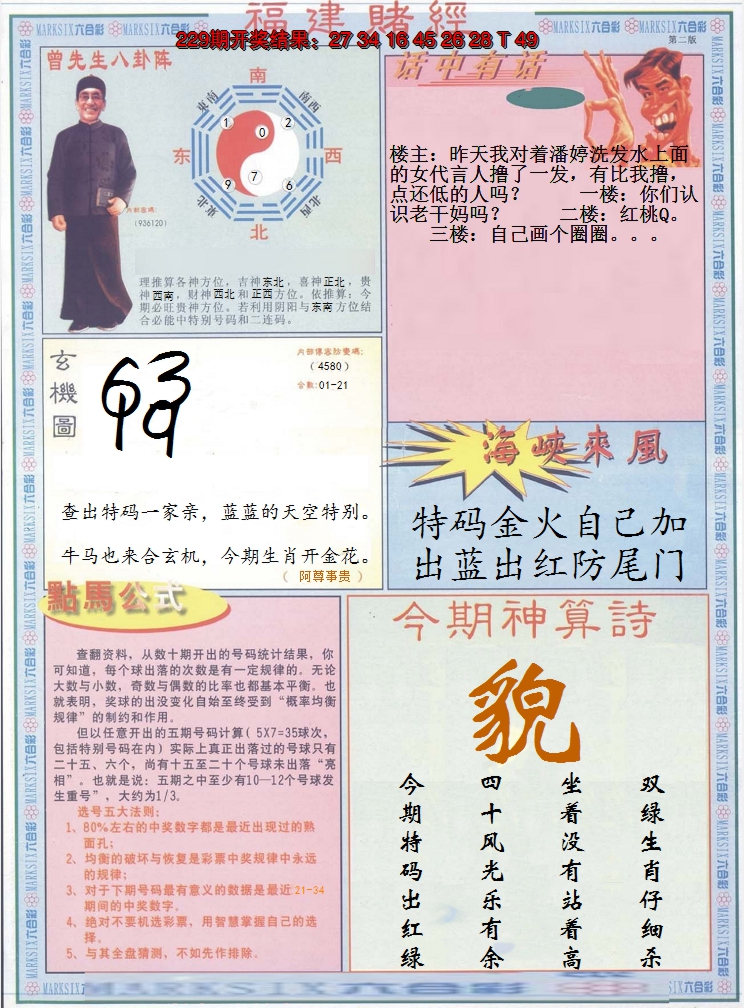 福建賭經
229期开奖结果：27 34 16 45 26 28 T 49
第二版
曾先生八卦阵
南
东南
西南
东
西
东北
西北
北
1
0
2
9
7
6
内部密碼:
(936120)
理推算各神方位，吉神东北，喜神正北，贵
神西南，财神西北和正西方位。依推算：今
期必旺贵神方位。若利用阴阳与东南方位结
合必能中特别号码和二连码。
话中有话
楼主：昨天我对着潘婷洗发水上面
的女代言人撸了一发，有比我撸，
点还低的人吗？ 一楼：你们认
识老干妈吗？ 二楼：红桃Q。
三楼：自己画个圈圈。。。
玄機圖
(4580)
合数:01-21
查出特码一家亲，蓝蓝的天空特别。
牛马也来合玄机，今期生肖开金花。
（ 阿尊事贵 ）
海峽來風
特码金火自己加
出蓝出红防尾门
點馬公式
查翻资料，从数十期开出的号码统计结果，你
可知道，每个球出落的次数是有一定规律的。无论
大数与小数，奇数与偶数的比率也都基本平衡。也
就表明，奖球的出没变化自始至终受到“概率均衡
规律”的制约和作用。
但以任意开出的五期号码计算( 5X7=35球次，
包括特别号码在内）实际上真正出落过的号球只有
二十五、六个，尚有十五至二十个号球未出落“亮
相”。也就是说：五期之中至少有10—12个号球发
生重号”，大约为1/3。
选号五大法则：
1、80%左右的中奖数字都是最近出现过的熟
面孔；
2、均衡的破坏与恢复是彩票中奖规律中永远
的规律；
3、对于下期号码最有意义的数据是最近21-34
期间的中奖数字。
4、绝对不要机选彩票，用智慧掌握自己的选
择。
5、与其全盘猜测，不如先作排除。
今期神算詩
貌
今期特码出红绿
四十风光乐有余
坐着没有站着高
双绿生肖仔细杀
MARKSIX六合彩